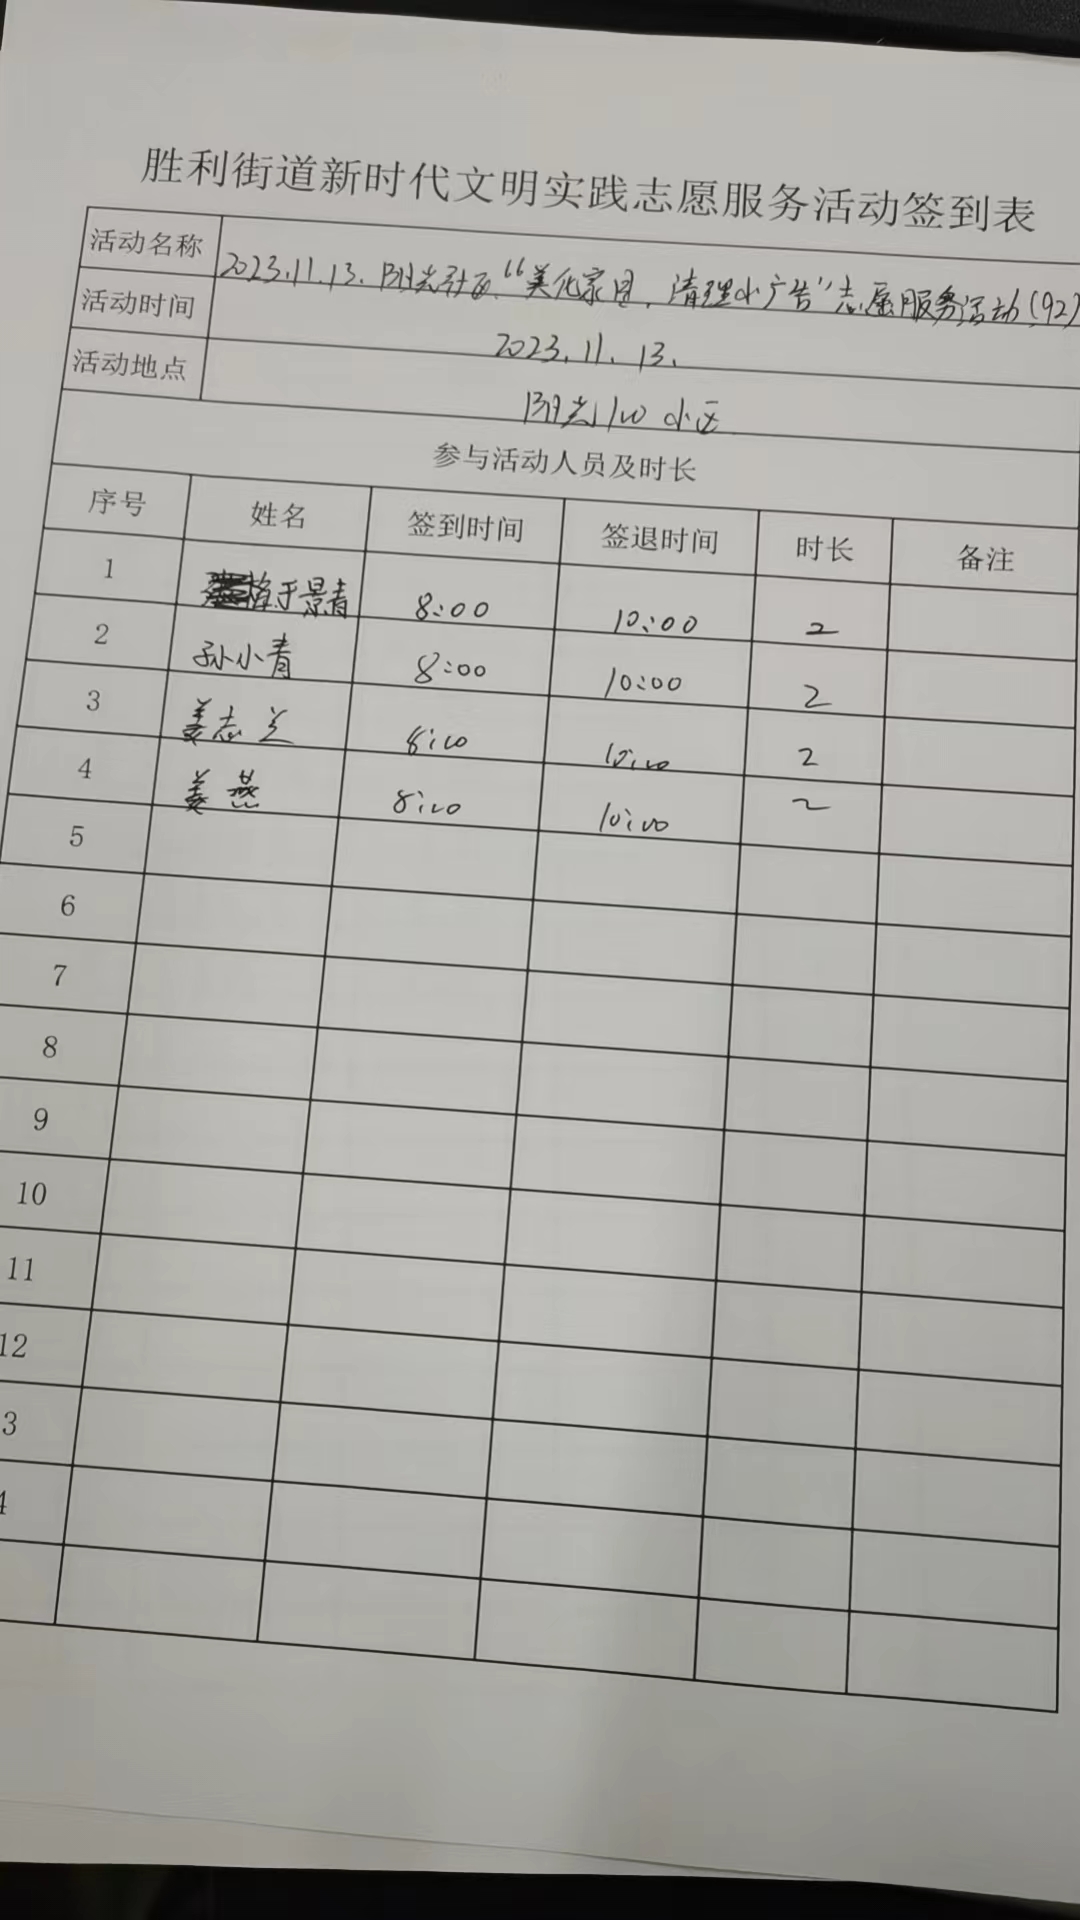 胜利街道新时代文明实践志愿服务活动签到表
活动名称 2023.11.13.阳光社区“美化家园,清理小广告”志愿服务活动(92)
活动时间 2023.11.13.
活动地点 阳光100小区
参与活动人员及时长
序号 姓名 签到时间 签退时间 时长 备注
1 于景青 8:00 10:00 2
2 孙小青 8:00 10:00 2
3 姜志兰 8:00 10:00 2
4 姜燕 8:00 10:00 2
5
6
7
8
9
10
11
12
3
4